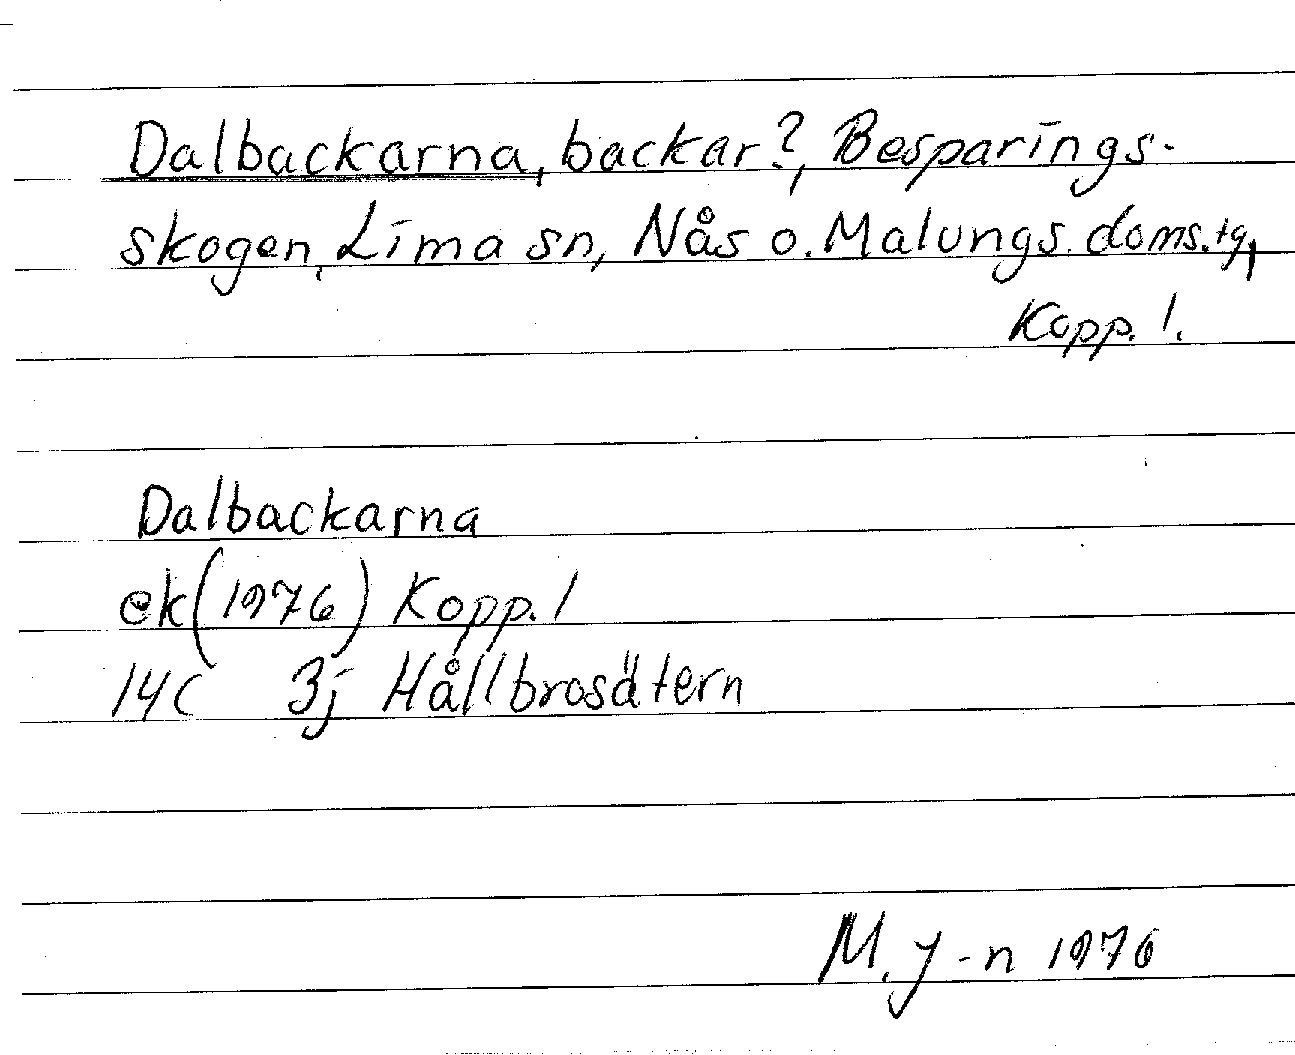 Dalbackarna, backar?, Besparings-
skogen, Lima sn, Nås o. Malungs doms.tg,
Kopp. l.
Dalbackarna
ek (1976) Kopp. l
14C 3j Hållbrosätern
M. J-n 1976